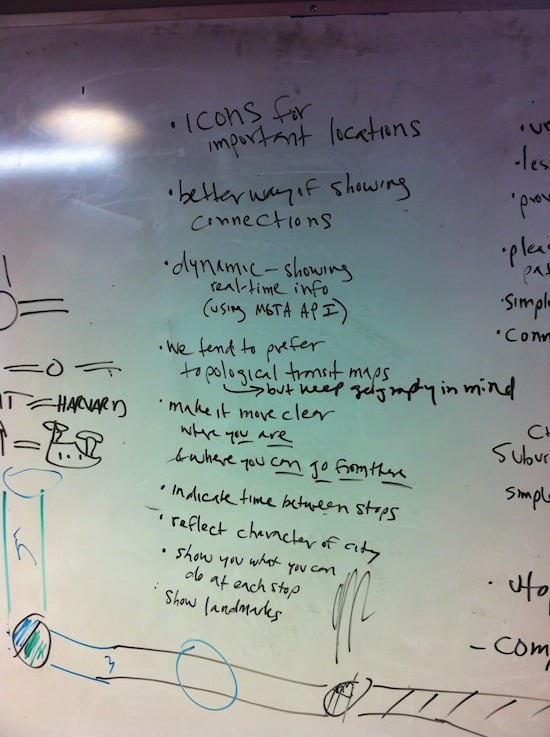 • ICONS for
important locations
• better way of showing
connections
• dynamic – showing
real-time info
(using MBTA API)
• We tend to prefer
topological transit maps
→ but keep geography in mind
• make it more clear
where you are
& where you can go from there
• indicate time between stops
• reflect character of city
• show you what you can
do at each stop
• Show landmarks
= O =
T = HARVARD
=
5
3
• les
• prov
• plea
• simpl
• conn
Subur
simple
- com